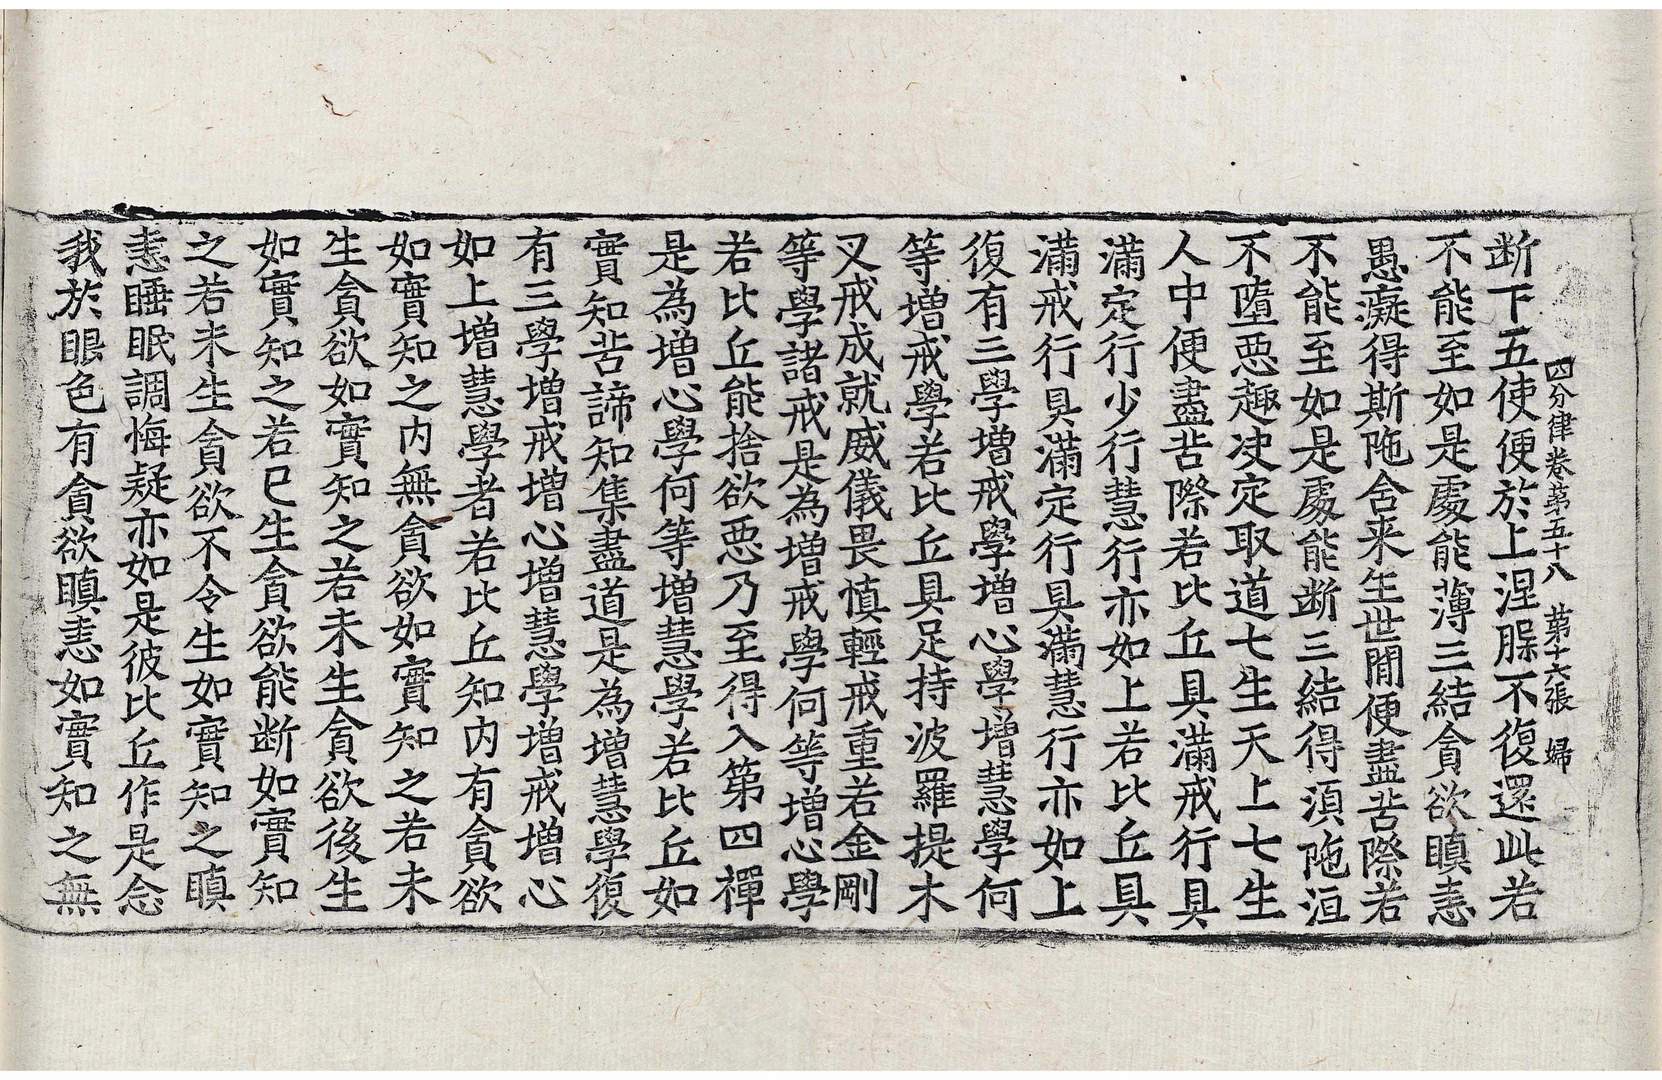 四分律卷第五十八 第十六張 婦
断下五使便於上涅脵不復還此若
不能至如是䖏能薄三結貪欲瞋恚
愚癡得斯陁舍来生世間便盡苦際若
不能至如是䖏能断三結得湏陁洹
不墮惡趣决定取道七生天上七生
人中便盡苦際若比丘具滿戒行具
滿定行少行慧行亦如上若比丘具
滿戒行具滿定行具滿慧行亦如上
復有三學增戒學增心學增慧學何
等增戒學若比丘具足持波羅提木
叉戒成就威儀畏慎輕戒重若金剛
等學諸戒是為增戒學何等增心學
若比丘能捨欲惡乃至得入第四禪
是為增心學何等增慧學若比丘如
實知苦諦知集盡道是為增慧學復
有三學增戒增心增慧學增戒增心
如上增慧學者若比丘知内有貪欲
如實知之内無貪欲如實知之若未
生貪欲如實知之若未生貪欲後生
如實知之若已生貪欲能断如實知
之若未生貪欲不令生如實知之瞋
恚睡眠調悔疑亦如是彼比丘作是念
我於眼色有貪欲瞋恚如實知之無